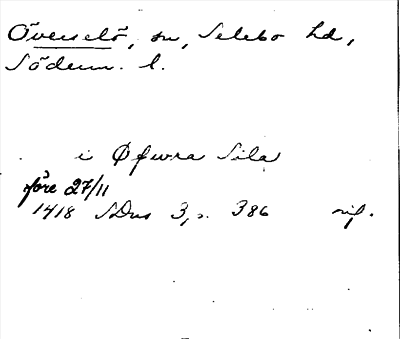 Överselö, sn, Selebo hd,
Söderm. l.
i Øfwra Sila
före 27/11
1418 SDns 3, s. 386 rif.